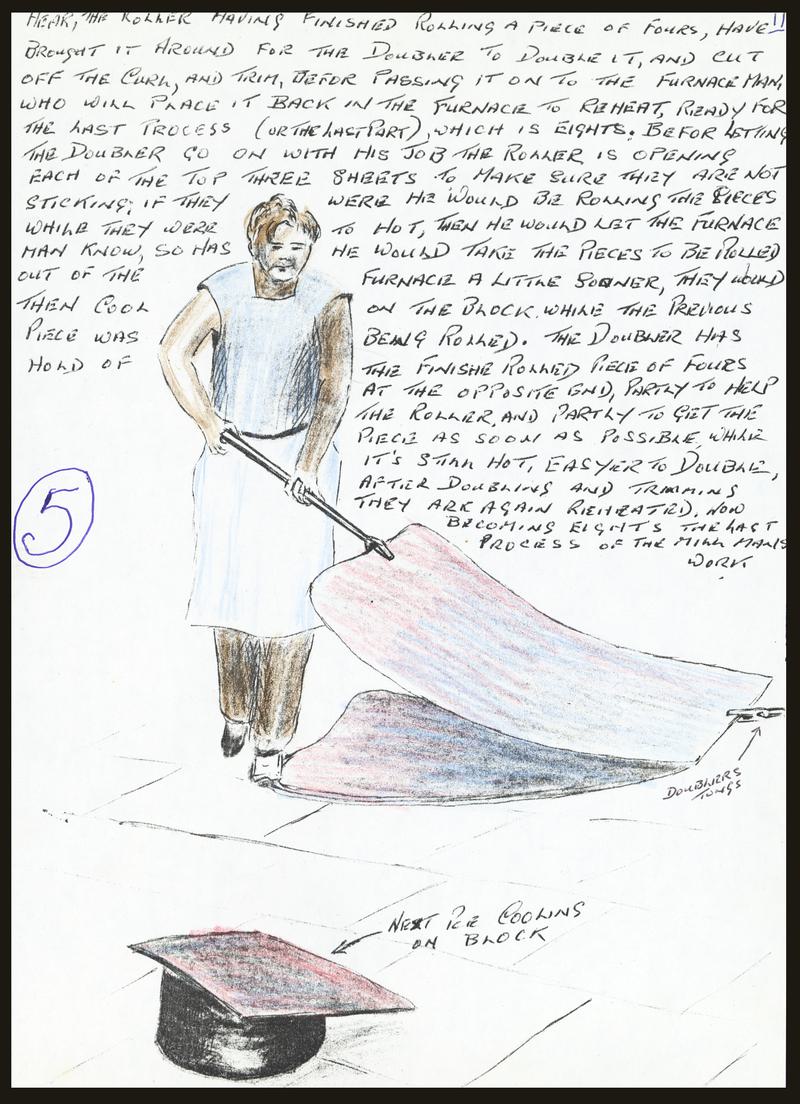 HEAR, THE ROLLER HAVING FINISHED ROLLING A PIECE OF FOURS, HAVE 11
BROUGHT IT AROUND FOR THE DOUBLER TO DOUBLE IT, AND CUT
OFF THE CURL, AND TRIM, BEFOR PASSING IT ON TO THE FURNACE MAN,
WHO WILL PLACE IT BACK IN THE FURNACE TO REHEAT, READY FOR
THE LAST PROCESS (OR THE LAST PART), WHICH IS EIGHTS. BEFOR LETTING
THE DOUBLER GO ON WITH HIS JOB THE ROLLER IS OPENING
EACH OF THE TOP THREE SHEETS TO MAKE SURE THEY ARE NOT
STICKING; IF THEY WERE HE WOULD BE ROLLING THE PIECES
WHILE THEY WERE TO HOT, THEN HE WOULD LET THE FURNACE
MAN KNOW, SO HAS HE WOULD TAKE THE PIECES TO BE ROLLED
OUT OF THE FURNACE A LITTLE SOONER, THEY WOULD
THEN COOL ON THE BLOCK, WHILE THE PREVIOUS
PIECE WAS BEING ROLLED. THE DOUBLER HAS
HOLD OF THE FINISHE ROLLED PIECE OF FOURS
AT THE OPPOSITE END, PARTLY TO HELP
THE ROLLER, AND PARTLY TO GET THE
PIECE AS SOON AS POSSIBLE, WHILE
IT'S STILL HOT, EASYER TO DOUBLE,
AFTER DOUBLING AND TRIMMING
THEY ARE AGAIN REHEATED. NOW
BECOMING EIGHT'S THE LAST
PROCESS OF THE MILL MAN'S
WORK.
5
DOUBLERS
TONGS
NEXT PCE COOLING
ON BLOCK